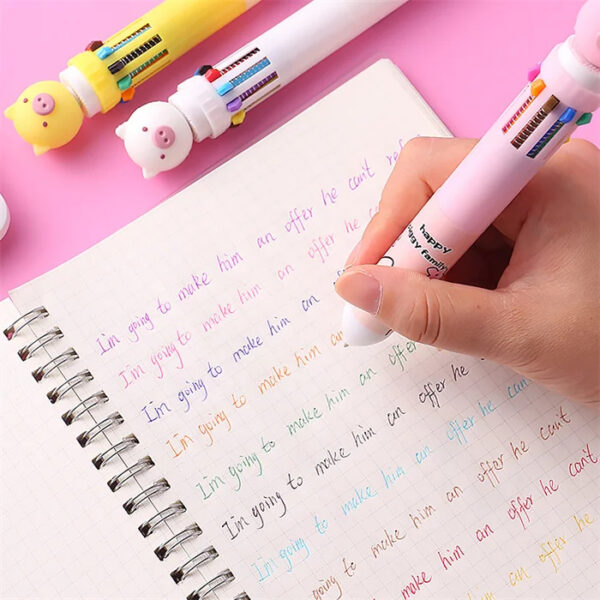 I'm going to make him an offer he can't
I'm going to make him an offer he can't
I'm going to make him an
I'm going to make him an
I'm going to make him an offer he
I'm going to make him an offer he can
I'm going to make him an offer he can't
going to make him an offer he can't
to make him an offer he can't
make him an offer he
happy
piggy family